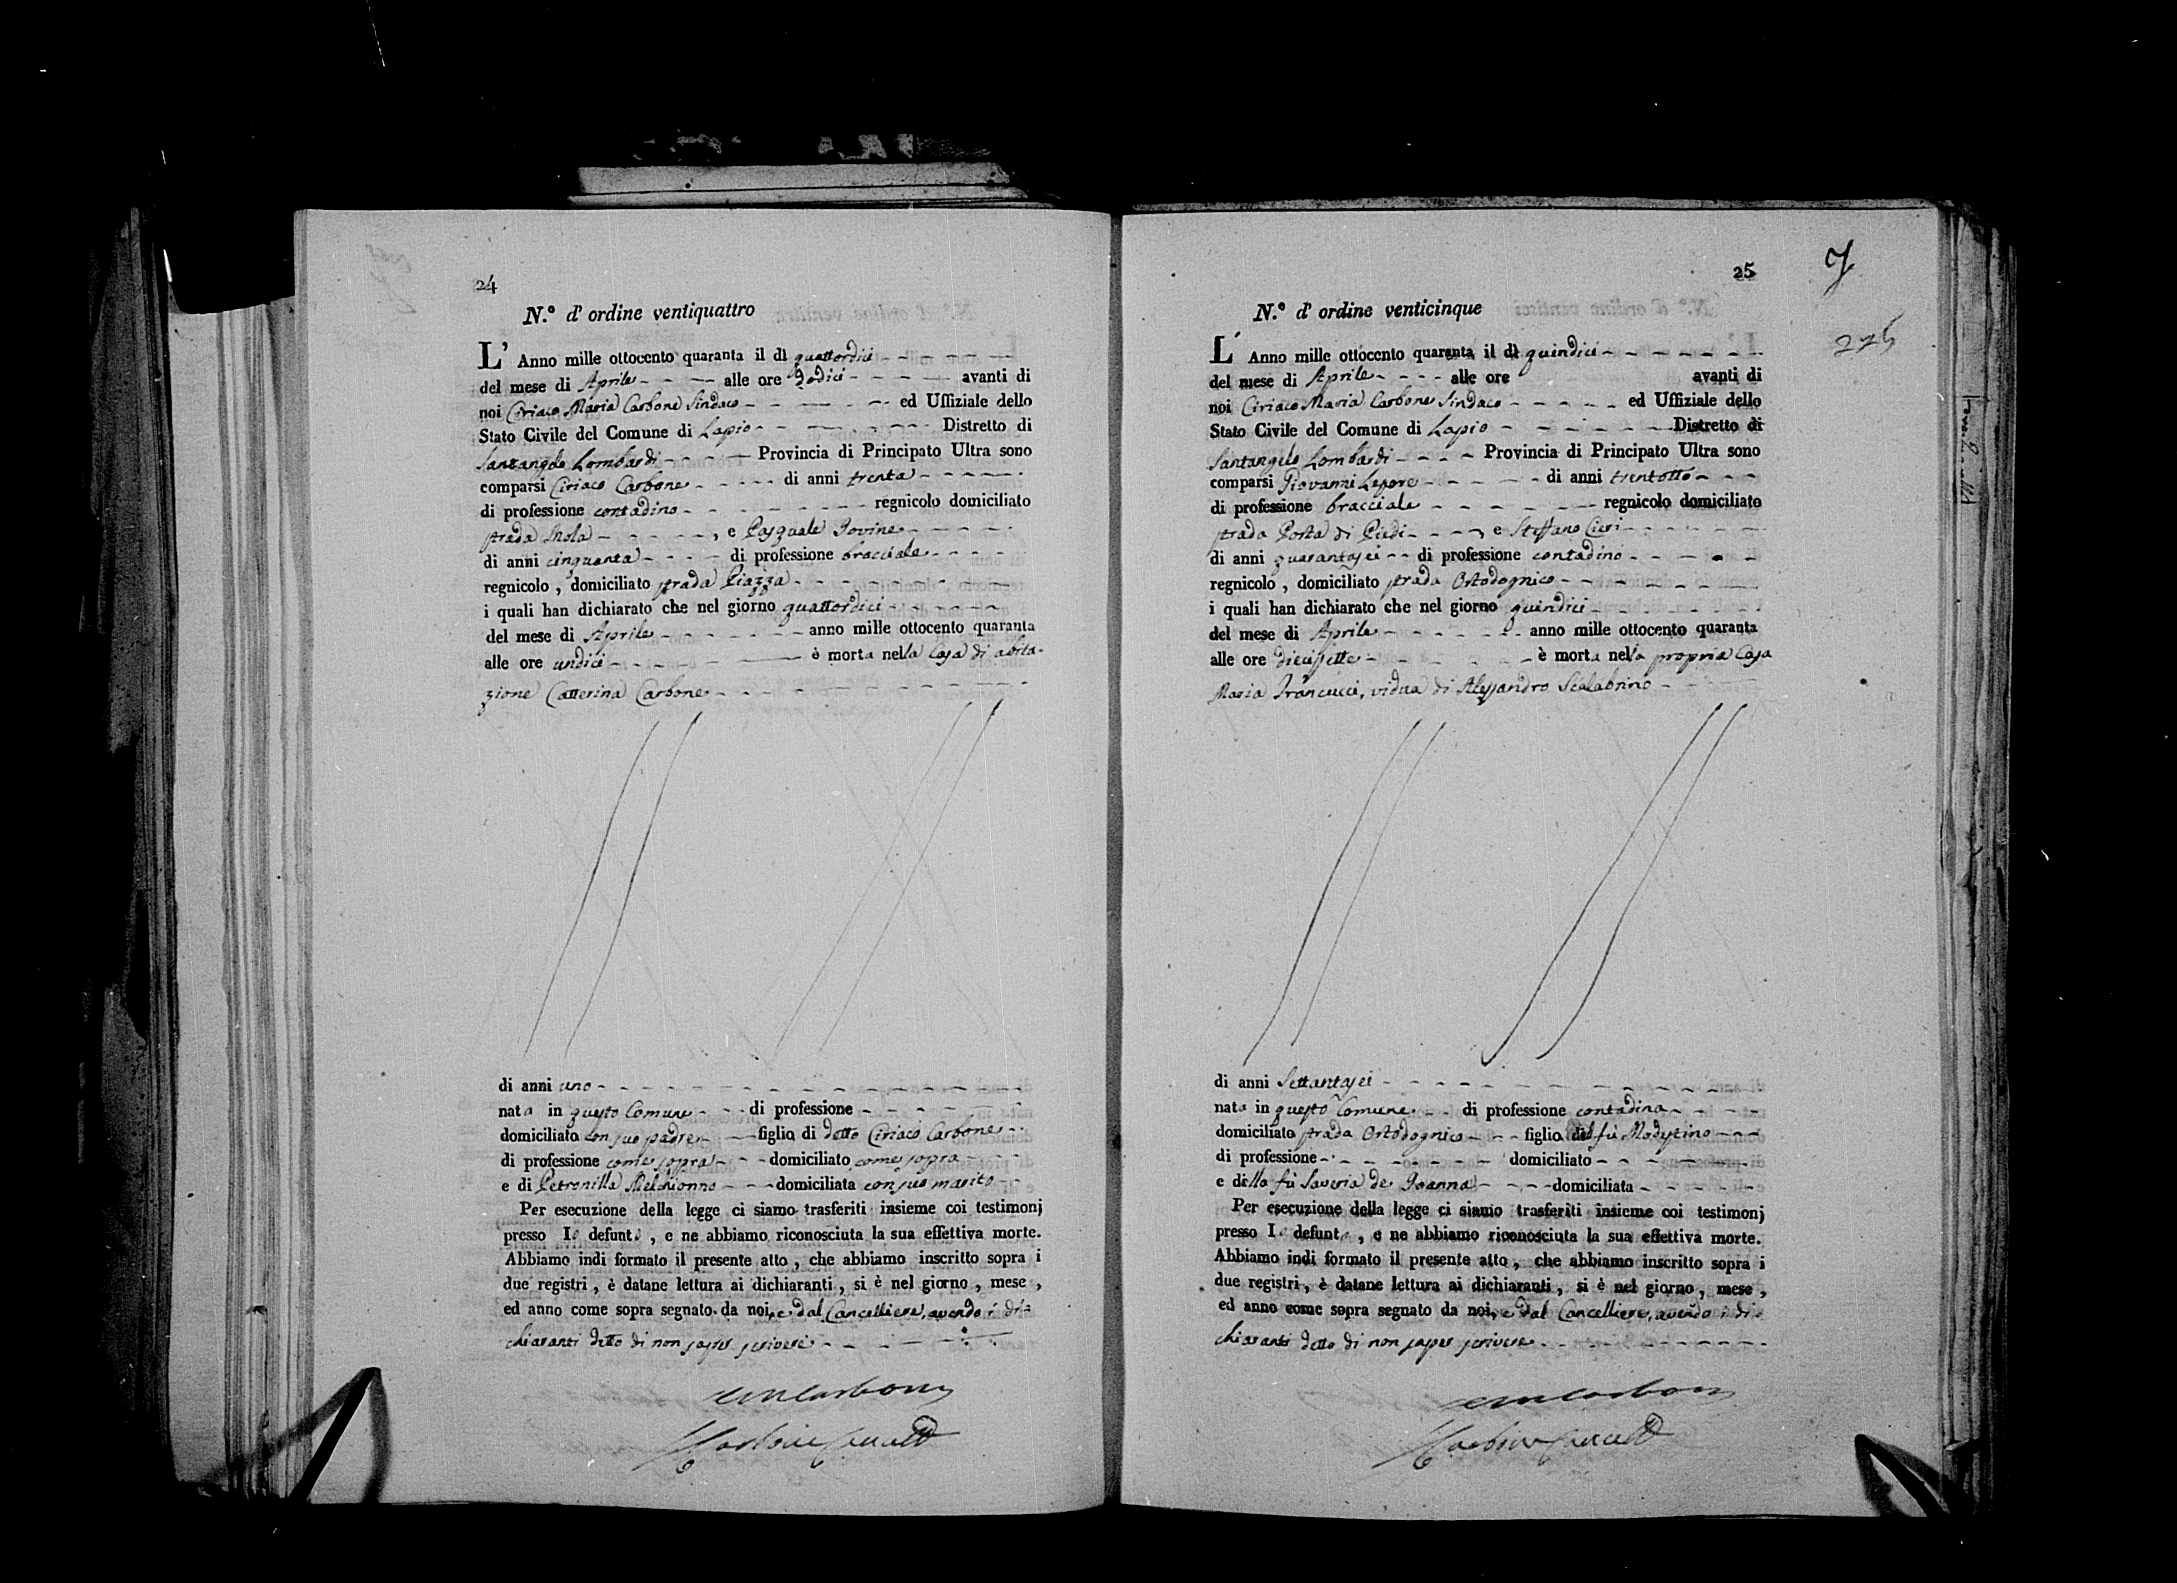 24
N.° d' ordine ventiquattro
L' Anno mille ottocento quaranta il dì quattordici
del mese di Aprile alle ore dodici avanti di
noi Ciriaco Maria Carbone Sindaco ed Uffiziale dello
Stato Civile del Comune di Lapio Distretto di
Santangelo Lombardi Provincia di Principato Ultra sono
comparsi Ciriaco Carbone di anni trenta
di professione contadino regnicolo domiciliato
strada , e Pasquale Iovine
di anni cinquanta di professione bracciale
regnicolo , domiciliato strada Piazza
i quali han dichiarato che nel giorno quattordici
del mese di Aprile anno mille ottocento quaranta
alle ore undici è morta nella Casa di abita-
zione Catterina Carbone
di anni uno
nata in questo Comune di professione
domiciliata con suo padre figlia di detto Ciriaco Carbone
di professione come sopra domiciliato come sopra
e di Petronilla Melchionno domiciliata con suo marito
Per esecuzione della legge ci siamo trasferiti insieme coi testimonj
presso la defunta , e ne abbiamo riconosciuta la sua effettiva morte.
Abbiamo indi formato il presente atto , che abbiamo inscritto sopra i
due registri , è datane lettura ai dichiaranti , si è nel giorno , mese ,
ed anno come sopra segnato da noi, e dal Cancelliere, avendo i di-
chiaranti detto di non saper scrivere
CM Carbone
25
7
275
N.° d' ordine venticinque
L' Anno mille ottocento quaranta il dì quindici
del mese di Aprile alle ore avanti di
noi Ciriaco Maria Carbone Sindaco ed Uffiziale dello
Stato Civile del Comune di Lapio Distretto di
Santangelo Lombardi Provincia di Principato Ultra sono
comparsi Giovanni Lepore di anni trentotto
di professione bracciale regnicolo domiciliato
strada Porta di Piedi , e Steffano Cieri
di anni quarantasei di professione contadino
regnicolo , domiciliato strada Ortodognico
i quali han dichiarato che nel giorno quindici
del mese di Aprile anno mille ottocento quaranta
alle ore diecisette è morta nella propria Casa
Maria Francucci, vidua di Alessandro Scalabrino
di anni Settantasei
nata in questo Comune di professione contadina
domiciliato strada Ortodognico figlia del fù Modestino
di professione domiciliato
e della fù Saveria de Ioanna domiciliata
Per esecuzione della legge ci siamo trasferiti insieme coi testimonj
presso la defunta , e ne abbiamo riconosciuta la sua effettiva morte.
Abbiamo indi formato il presente atto , che abbiamo inscritto sopra i
due registri , è datane lettura ai dichiaranti , si è nel giorno , mese ,
ed anno come sopra segnato da noi, e dal Cancelliere, avendo i di-
chiaranti detto di non saper scrivere
CM Carbone